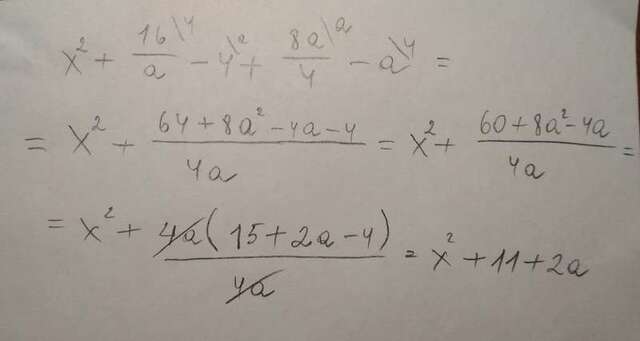 x² + 16\4/a − 4\a + 8a\a/4 − a\4 =
= x² + (64 + 8a² − 4a − 4)/4a = x² + (60 + 8a² − 4a)/4a =
= x² + 4a(15 + 2a − 4)/4a = x² + 11 + 2a